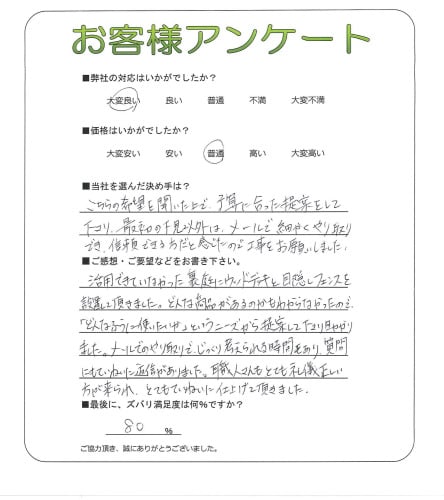 お客様アンケート
■弊社の対応はいかがでしたか?
大変良い 良い 普通 不満 大変不満
■価格はいかがでしたか?
大変安い 安い 普通 高い 大変高い
■当社を選んだ決め手は?
こちらの希望を聞いた上で、予算に合った提案をして
下さり、最初の下見以外は、メールで細やくやり取り
でき、信頼できる方だと感じたので工事をお願いしました。
■ご感想・ご要望などをお書き下さい。
活用できていなかった裏庭にウッドデッキと目隠しフェンスを
設置して頂きました。どんな商品があるのかもわからなかったので、
「どんなふうに使いたいか」というニーズから提案して下さり助かり
ました。メールでのやり取りで、じっくり考えられる時間もあり、質問
にもていねいに返信がありました。職人さんもとても礼儀正しい
方が来られ、とてもていねいに仕上げて頂きました。
■最後に、ズバリ満足度は何%ですか?
80 %
ご協力頂き、誠にありがとうございました。